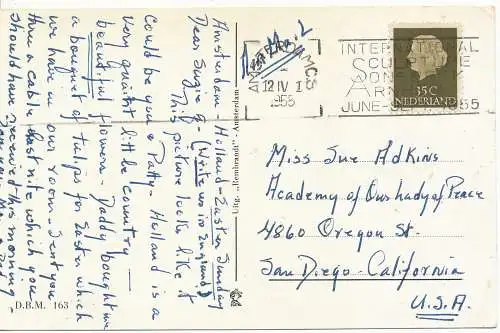 Amsterdam - Holland - Easter Sunday
Dear Susie &- (Write us in England)
This picture looks like it
could be you & Patty - Holland is a
very quaint little country -
beautiful flowers - Daddy bought me
a bouquet of tulips for Easter which
we have in our room - Sent you
thru a cable last nite which you
should have received this morning -
D.B.M. 163
Uitg. „Rembrandt”- Amsterdam
AMSTERDAM CS
12 IV
1955
INTERNATIONAL
SCULPTURE
ARNHEM
JUNE-SEPT. 1955
35 C
NEDERLAND
Miss Sue Adkins
Academy of Our Lady of Peace
4860 Oregon St.
San Diego - California
U.S.A.